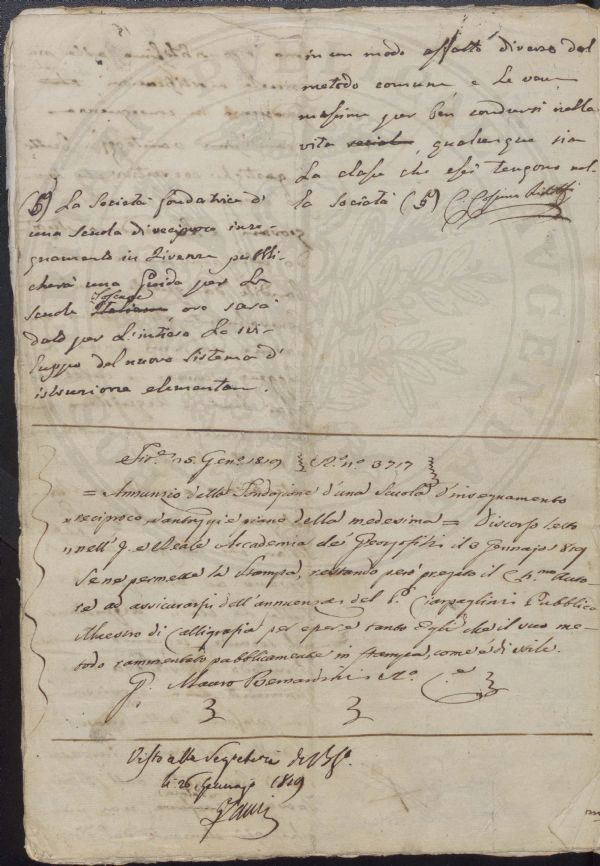 in un modo affatto diverso dal
metodo comune, e le vere
massime per ben condursi nella
vita sociale, qualunque sia
la classe che essi tengono nel-
la società (5) C. Cosimo Ridolfi
(5) La Società fondatrice d'
una scuola di reciproco inse-
gnamento in Firenze pubbli-
cherà una Guida per le
scuole Toscane Italiane, ove sarà
dato per l'intiero lo svi-
luppo del nuovo sistema d'
istruzione elementare.
Fir.e 15. Gen.o 1819 R.o n.o 3717
= Annunzio della Fondazione d'una Scuola d'insegnamento
reciproco, vantaggi e piano della medesima = Discorso letto
nell'I. e Reale Accademia dei Georgofili il 3 Gennajo 1819
Se ne permette la stampa, restando però pregato il Auto-
re ad assicurarsi dell'annuenza del Pubblico
Maestro di Calligrafia per essere tanto Egli che il suo me-
todo rammentato pubblicamente in stampa, come è di stile.
P. Mauro Bernardini
Visto alla Segreteria
li 26 Gennajo 1819